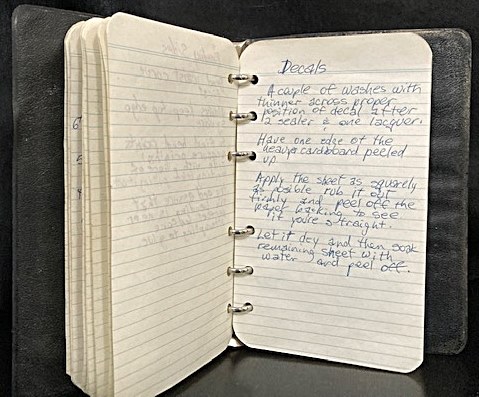 Decals
A couple of washes with
thinner across proper
position of decal after
2 sealer & one lacquer.
Have one edge of the
heavy cardboard peeled
up
Apply the sheet as squarely
as posible rub it out
firmly and peel off the
paper backing to see
if you're straight.
Let it dry and then soak
remaining sheet with
water and peel off.
6
5
4